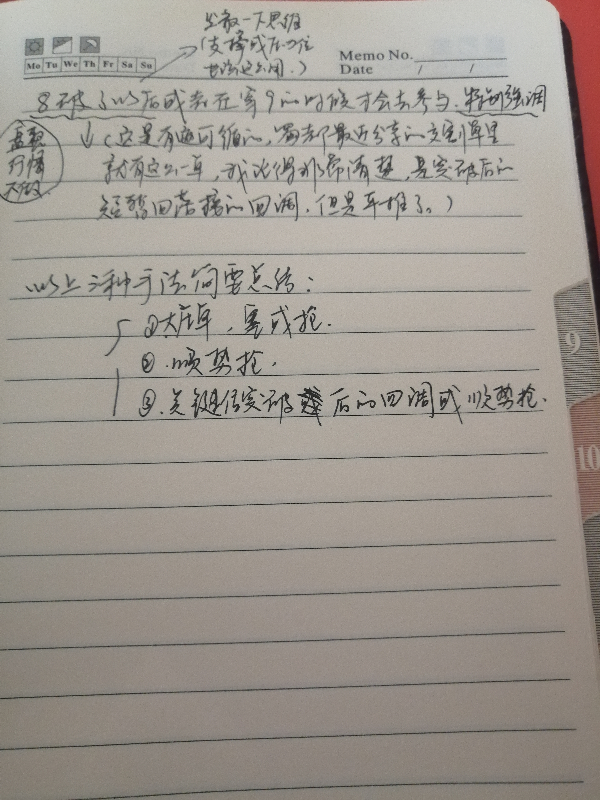 发散一下思维
(支撑或压力位
也是这么用.)
Mo Tu We Th Fr Sa Su
Memo No.
Date / /
8破了以后或者在等9的时候才会去参与.特别强调
(这是有迹可循的,蜀都最近分享的交割单里
行情
不做
就有这么一单,我记得非常清楚,是突破后的
短暂回落接的回调.但是平推了。)
以上三种手法简要总结:
①大库单,塞或抢.
②.顺势抢.
③.关键位突破后的回调或顺势抢.
9
10